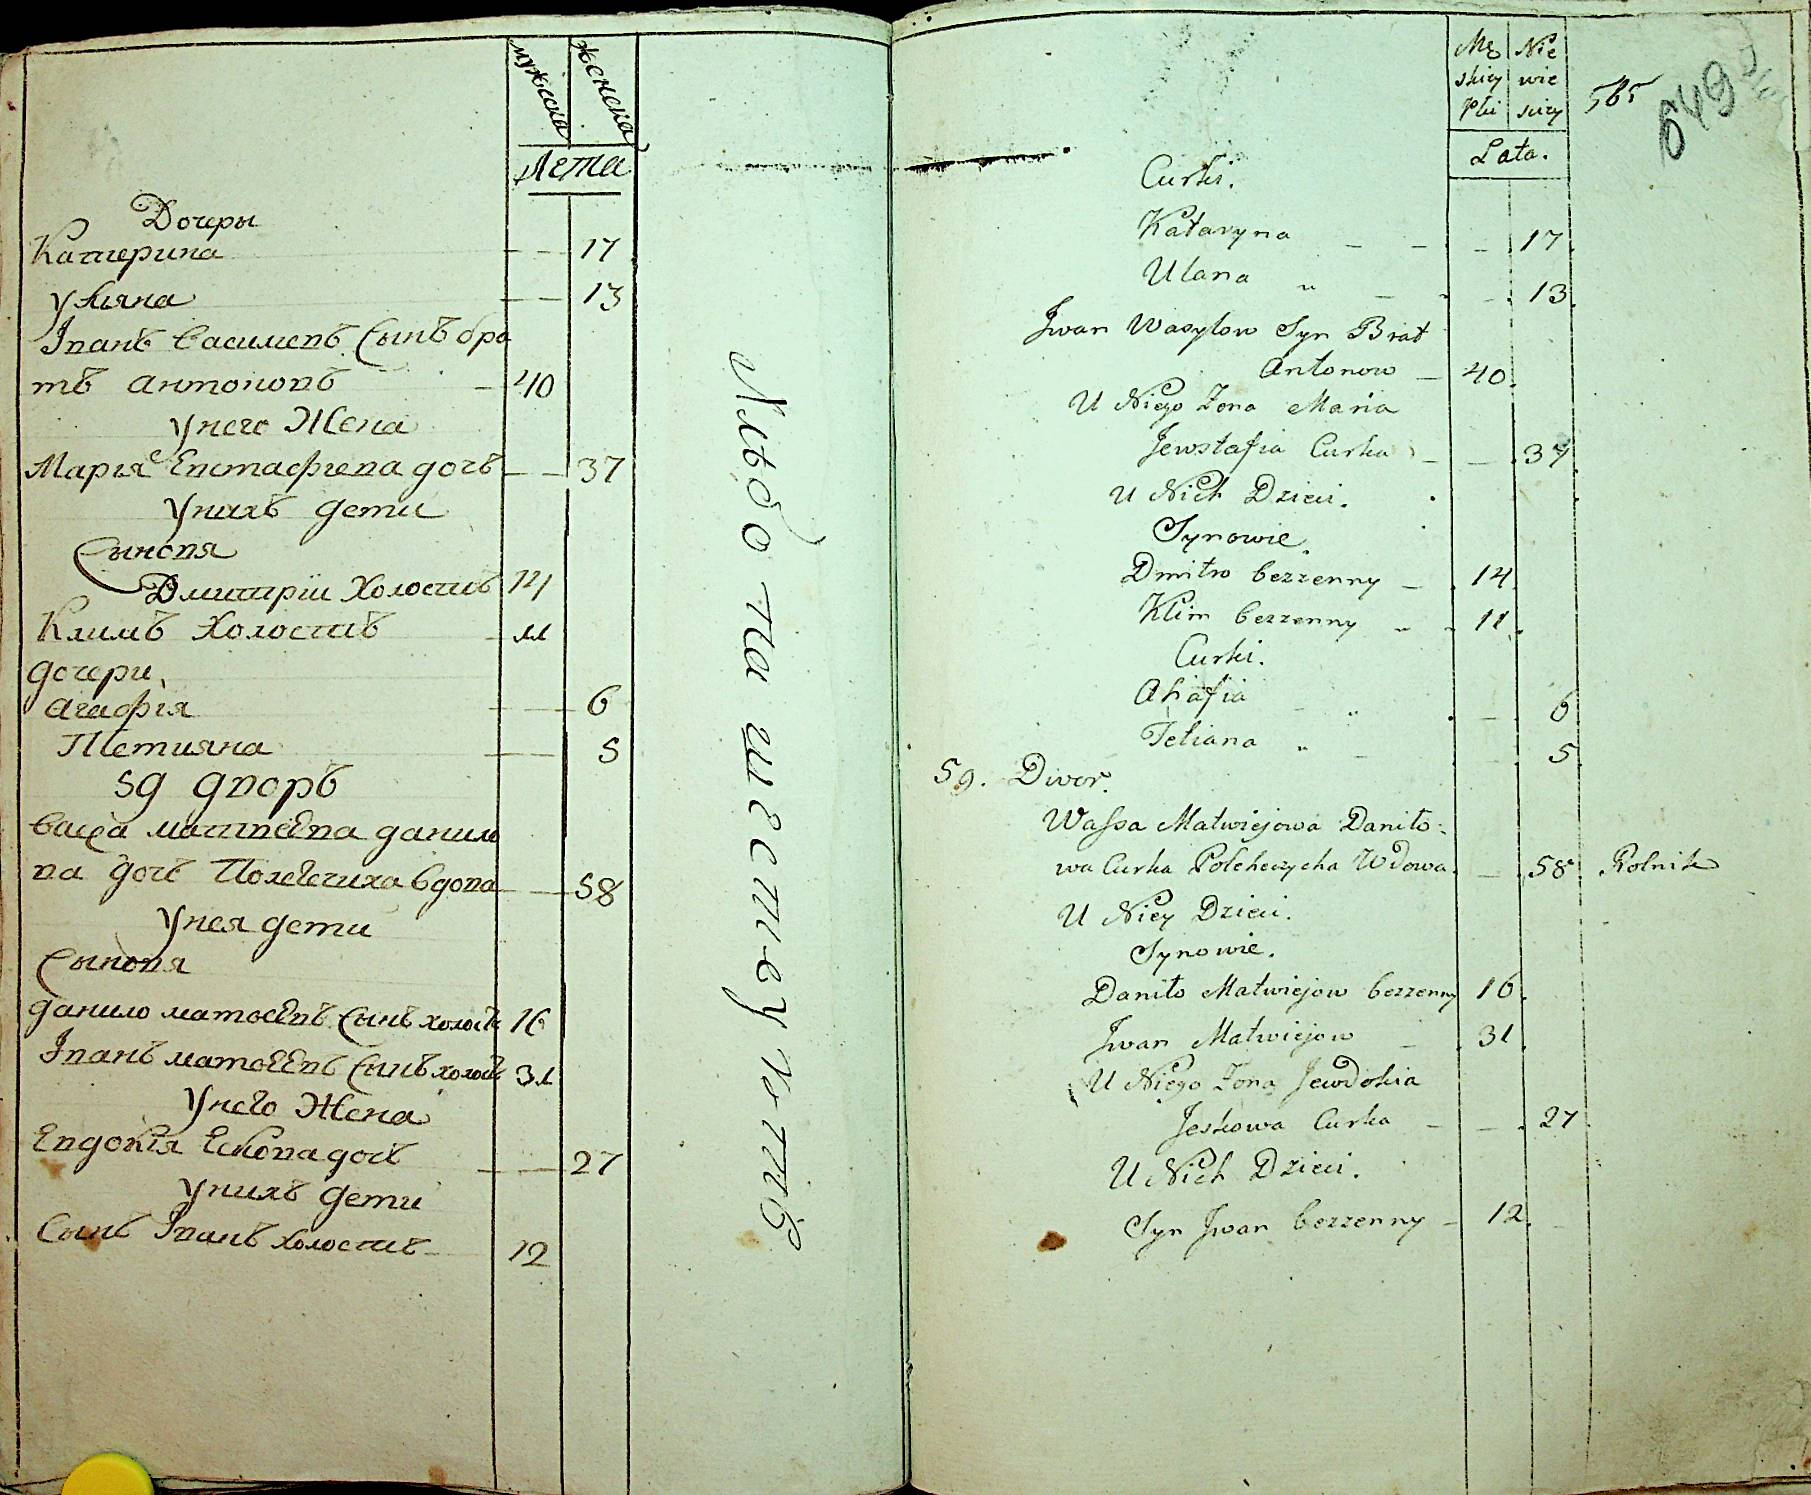 мужеска женска
Лета
Дочеры
Катерина — — 17
ульяна — — 13
Іванъ василевъ Сынъ бра
тъ антоновъ — 40
унего Жена
Марія Евстафіева дочь — — 37
унихъ дети
Сыновя
Дмитріи Холостъ 14
Климъ Холостъ — 11
дочери
агафія — — 6
Тетияна — — 5
59 дворъ
васса матвеева данило
ва дочь Полевечиха вдова — — 58
унея дети
Сыновя
данило матвеевъ Сынъ холостъ 16
Іванъ матвеевъ Сынъ холостъ 31
унего Жена
Евдокія Ескова дочь — — 27
унихъ дети
Сынъ Іванъ холостъ — 12
Лхъо та шестеу
Mę Nie
skiey wie
Płci sciey
565
649
Lata.
Curki.
Kataryna — — — 17.
Ulana „ — — 13.
Jwan Wasylow Syn Brat
Antonow — 40.
U Niego Zona Maria
Jewstafia Curka — — 37
U Nich Dzieci.
Synowie.
Dmitro bezzenny — 14.
Klim bezzenny „ 11.
Curki.
Ahafia — „ — 6
Tetiana „ — — 5
59. Dwor.
Wassa Matwiejowa Daniło-
wa Curka Polehczycha Wdowa. — 58 Rolnik
U Niey Dzieci.
Synowie.
Daniło Matwiejow bezzenny 16.
Jwan Matwiejow — 31.
U Niego Zona Jewdokia
Jeskowa Curka — — 27
U Nich Dzieci.
Syn Jwan bezzenny — 12.